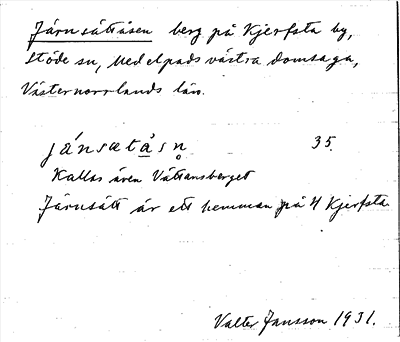 Järnsättåsen berg på Kjerfsta by,
Stöde sn, Medelpads västra domsaga,
Västernorrlands län.
jánsætåsn̥ 35.
Kallas även Våttansberget
Järnsätt är ett hemman på 4 Kjerfsta
Valter Jansson 1931.